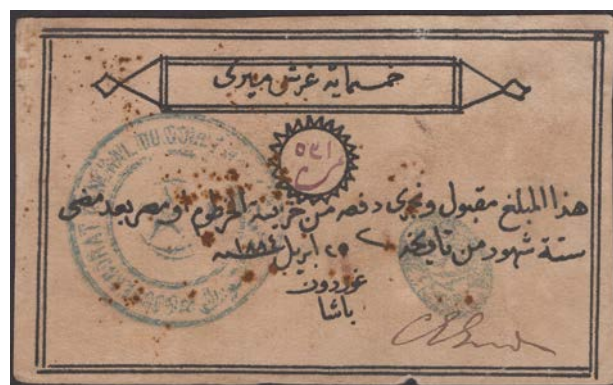 خمسماية غرش ميرى
٥٣١
هذا المبلغ مقبول ويجرى دفعه من خزينة الخرطوم او مصر بعد مضى
ستة شهور من تاريخه ٢٥ ابريل ١٨٨٤سنه
غوردون
باشا